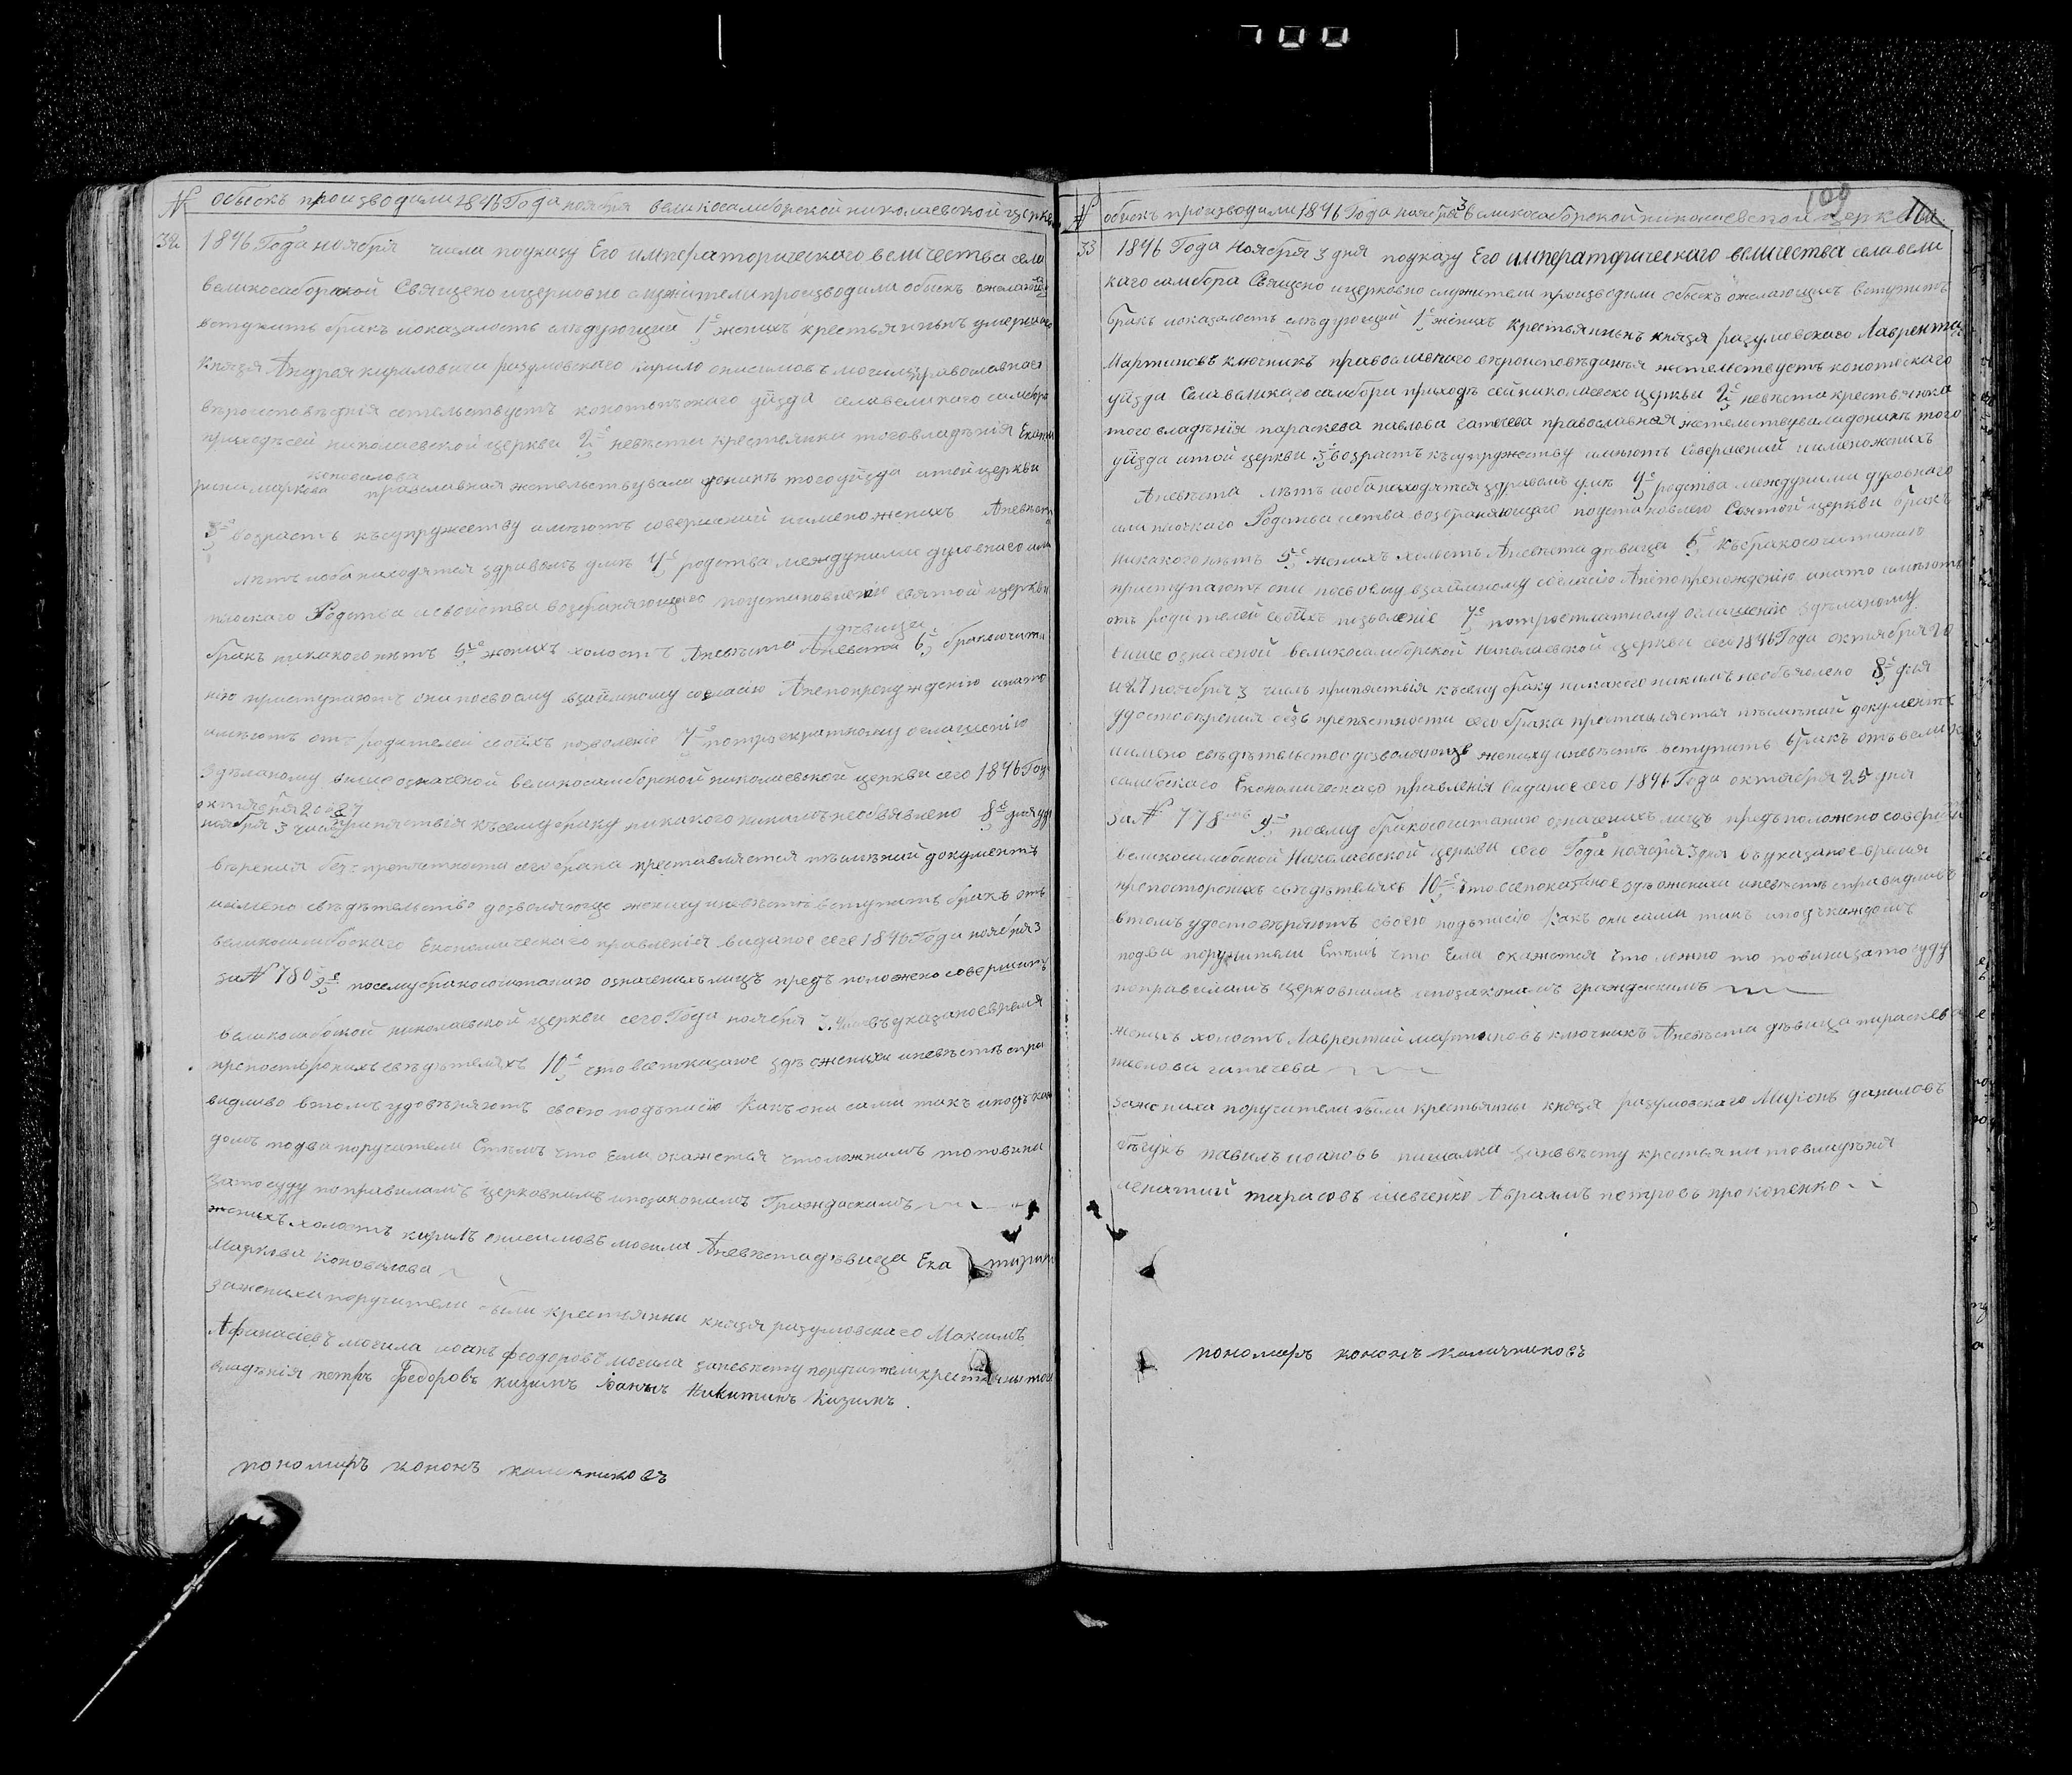 700
№ обыскъ производили 1846 Года ноября великосамборской николаевской церкви
32 1846 Года ноября числа поуказу Его императорическаго величества села
великосаборской Священо ицерковно служители производили обыск ожелающих
вступить бракъ показалость слѣдующий 1е женихъ крестьянинъ умершаго
Князя Андрея кираловича разумовскаго Кирило онисимовъ могила православнаго
вѣроисповѣднія жетельствуетъ конотопъскаго уйзда села великаго самбора
приходъ сей николаевской церкви 2е невѣста крестьянка тоговладѣнія Екате
коновалова
рина маркова православная жетельствувала донинѣ тогоуйзда итой церкви
3е возрастъ късупружеству имѣютъ совершеный имено женихъ Аневѣста
лѣтъ иоба находятся здравомъ умѣ 4е родства междуними духовнаго или
плоскаго Родства исвойства возбраняющаго поустановленію святой церкви
дѣвица
бракъ никакогонѣтъ 5е женихъ холостъ Аневѣста Аневѣста 6е бракосочита
нію приступаютъ они посвоему взаймному согласію Анепопренужденію инато
имѣютъ отъ родителей своихъ позволеніе 7е потроекратному оглашенію
здѣланому вишеозначеной великосамборской николаевской церкви сего 1846 Года
октября 20 и 27
ноября 3 числ припяствія къ сему браку никакого никимъ необъявлено 8е для удо
вѣрения безъ препятности сего брака преставляется писмѣний документъ
имено свѣдѣтельство дозволяюще жениху иневѣстѣ вступить бракъ отъ
великосамбоского Економическаго правленія виданое сего 1846 Года ноября 3
за № 780 9е посему бракосочитанию означенихъ лицъ предъ положено совершить
великосамбоской николаевской церкви сего Года ноября 3 въуказаноевремя
препосторонихъ свѣдѣтеляхъ 10е что всепоказаное здѣ оженихи иневѣстѣ спра
видливо втомъ удовѣряютъ своею подписію Какъ они сами такъ ипоодъ каж
домъ подва поручители Стѣмъ что Если окажется чтоложнимъ топовини
затосуду поправиламъ церковнимъ ипозаконамъ Граждаскимъ
женихъ холостъ кирилъ онисимовъ могила Аневѣста дѣвица Ека терина
Маркова Коновалова
заженихи поручители были крестянни князя разумовскаго Максимъ
Афанасіевъ могила иоанъ феодоровъ могила заневѣсту поручители крестянны того
владѣнія петръ Федоровъ кизимъ Иоанъ Никитинъ Кизимъ.
пономаръ кононъ калачниковъ
109
№ обыскъ производили 1846 Года ноября 3 великосаборской николаевской церкви
33 1846 Года Ноября 3 дня поуказу Его императорическаго величества села вели
каго самбора Священо ицерковно служители производили обыскъ ожелающихъ вступить
бракъ показалость слѣдующий 1е женихъ крестьянинъ князя разумовскаго Лаврентій
Мартиновъ ключникъ православнаго вѣроисповѣданья жетельствуетъ конотоскаго
уйзда Села великаго самбора приходъ сей николаевско церкви 2е невѣста крестьячка
того владѣнія параскева павлова гатчева православная жетельствувала донинѣ того
уйзда итой церкви 3е возрастъ късупружеству имѣютъ Совершеный именоженихъ
Аневѣста лѣтъ иоба находятся здравомъ умѣ 4е родства междуними духовнаго
или плоскаго Родства иства возбраняющаго поустановлею Святой церкви бракъ
никакогонѣтъ 5е женихъ холостъ Аневѣста дѣвица 6е къбракосочитанію
приступаютъ они посвоему взаймному согласію Анепопренождению инато имѣютъ
отъ родителей своихъ позволеніе 7е потроекратному оглашенію здѣланому
вишеозначеной великосамборской николаевской церкви сего 1846 Года октября 20
и 27 ноября 3 числъ припяствія късему браку никакого никимъ необъявлено 8е для
удостовѣрения безъ препятности сего брака преставляется писмѣний документъ
имено свѣдѣтельство дозволяюще жениху иневѣстѣ вступить бракъ отъ велико
самбоскаго Економическаго правленія виданое сего 1846 Года октября 25 дня
за № 778 9е посему бракосочитанию означенихъ лицъ предъположено совершить
великосамбоской Николаевской церкви сего Года ноября 3 дня въуказаное время
препосторонихъ свѣдѣтеляхъ 10е Что всепоказаное здѣ оженихи иневѣстѣ справидливо
втомъ удостовѣряютъ своею подписію Какъ они сами такъ ипоодъкаждомъ
подва поручители Стѣмъ что Если окажется что ложно то повини затосуду
поправиламъ церковнимъ ипозаконамъ граждаскимъ
женихъ холостъ Лаврентий мартиновъ ключникъ Аневѣста дѣвица параскева
павлова гатчева
зажениха поручители были крестьянны князя разумовскаго Миронъ даниловъ
бѣгунъ павилъ иоановъ пищалка заневѣсту крестьяни товладѣнія
игнатий тарасовъ шевченко Абрамъ петровъ прокопенко
пономаръ кононъ калачниковъ